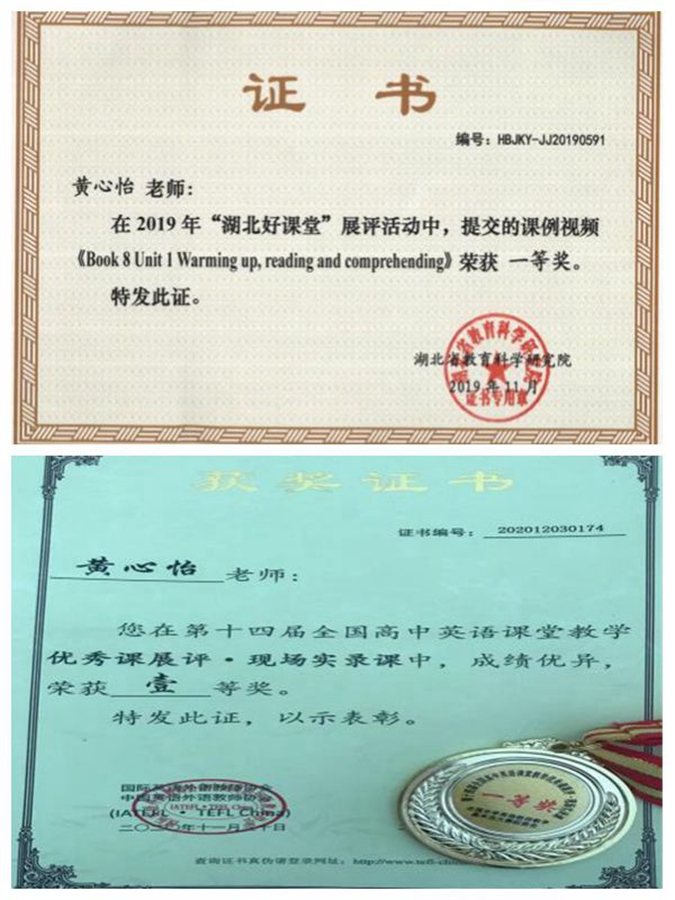 证 书
编号：HBJKY-JJ20190591
黄心怡 老师：
在 2019 年“湖北好课堂”展评活动中，提交的课例视频
《Book 8 Unit 1 Warming up, reading and comprehending》荣获 一等奖。
特发此证。
湖北省教育科学研究院
2019 年 11 月
证书专用章
获奖证书
证书编号：202012030174
黄心怡 老师：
您在第十四届全国高中英语课堂教学
优秀课展评·现场实录课中，成绩优异，
荣获 壹 等奖。
特发此证，以示表彰。
国际英语外语教师协会
中国英语外语教师协会
(IATEFL·TEFL China)
一等奖
查询证书真伪请登录网址：http://www.tefl-china